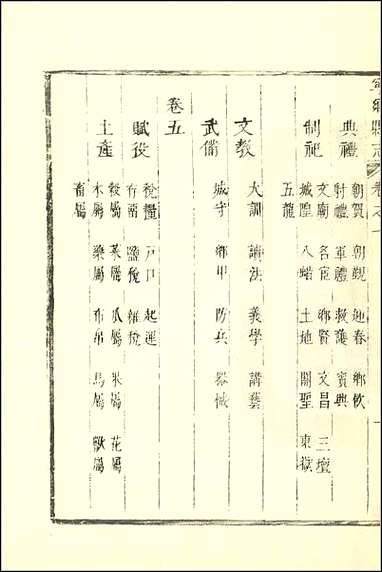 典禮
朝賀 朝覲 迎春 鄉飲
射禮 軍禮 救護 賓興
制祀
文廟 名宦 鄉賢 文昌 三壇
城隍 八蜡 土地 關聖 東嶽
五龍
文教
大訓 講法 義學 講藝
武備
城守 鄉甲 防兵 器械
卷五
賦役
稅糧 戶口 起運
存留 鹽稅 雜稅
土產
穀屬 菜屬 瓜屬 果屬 花屬
木屬 藥屬 布帛 鳥屬 獸屬
畜屬